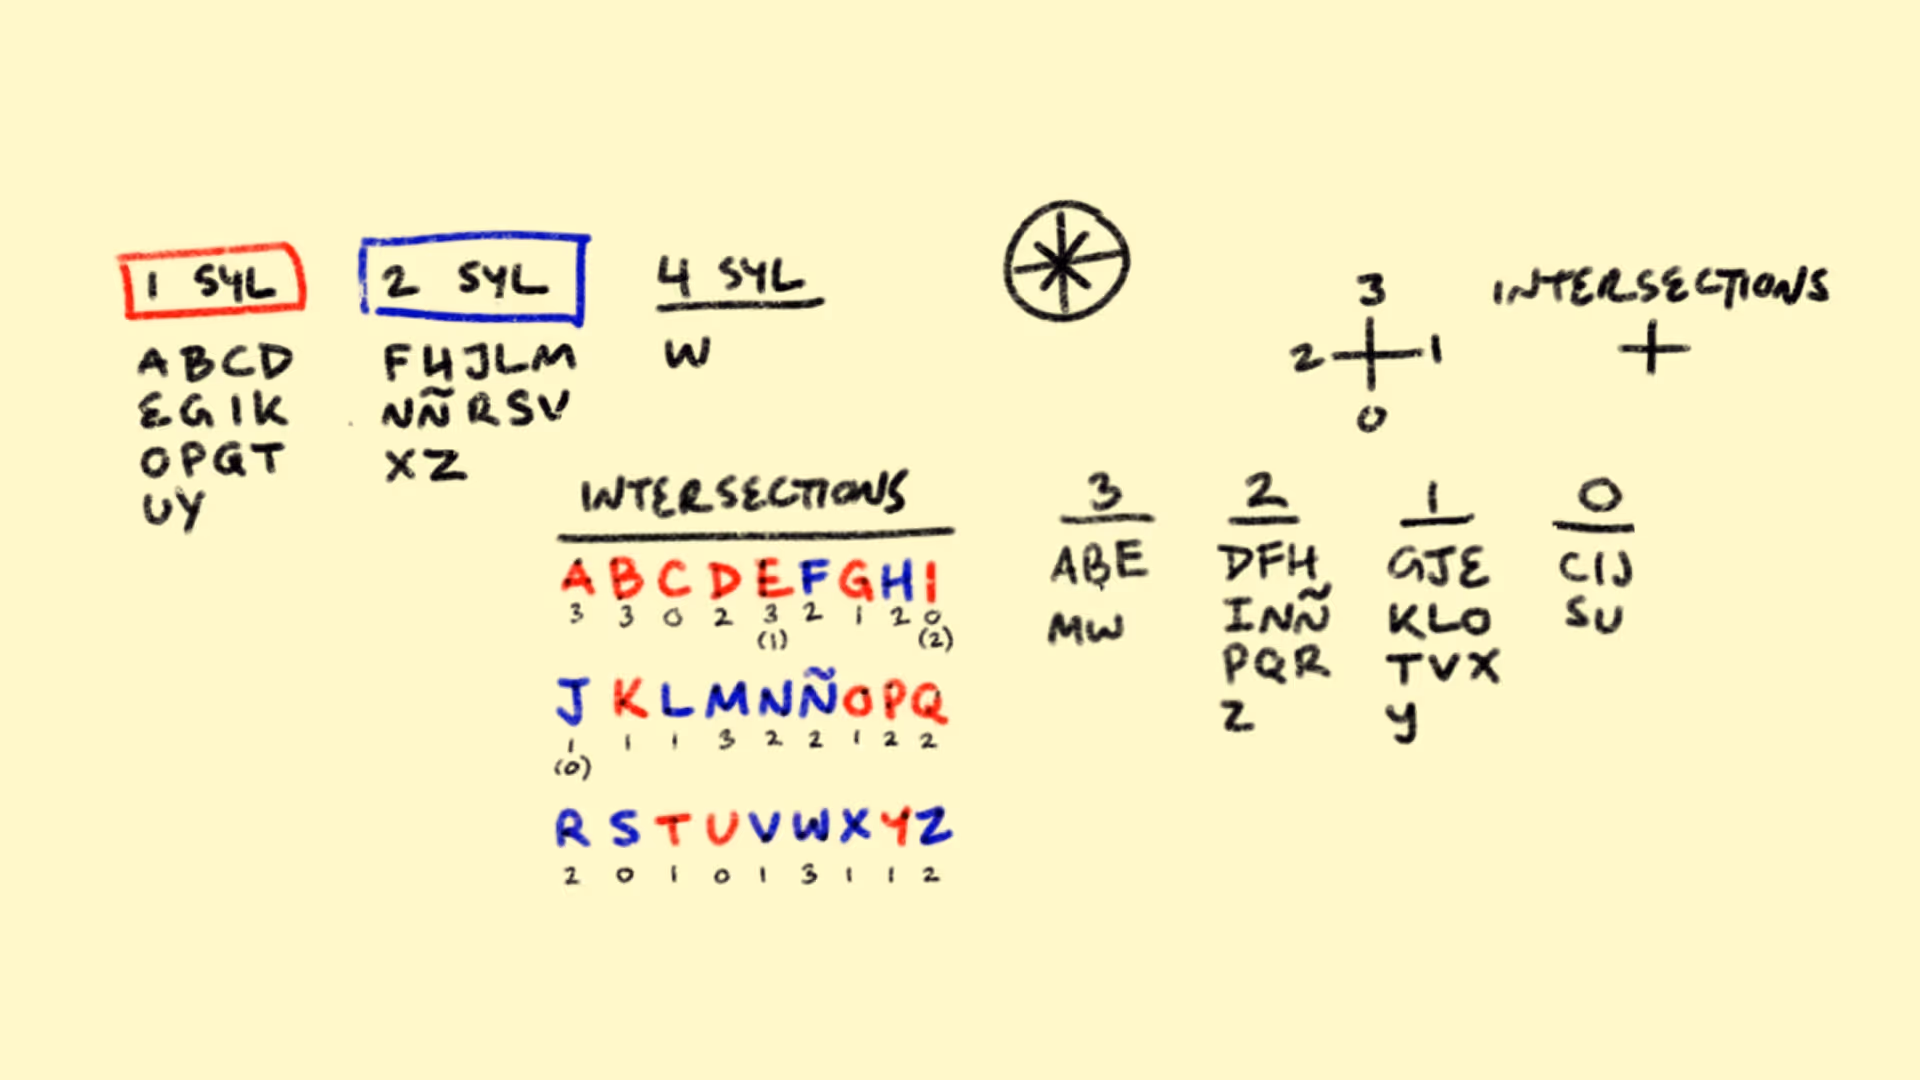 1 SYL
ABCD
EGIK
OPQT
UY
2 SYL
FHJLM
NÑRSV
XZ
4 SYL
W
INTERSECTIONS
ABCDEFGHI
3 3 0 2 3 2 1 2 0
(1) (2)
JKLMNÑOPQ
1 1 1 3 2 2 1 2 2
(0)
RSTUVWXYZ
2 0 1 0 1 3 1 1 2
3
2 1
0
INTERSECTIONS
3
ABE
MW
2
DFH
INÑ
PQR
Z
1
GJE
KLO
TVX
y
0
CIJ
SU